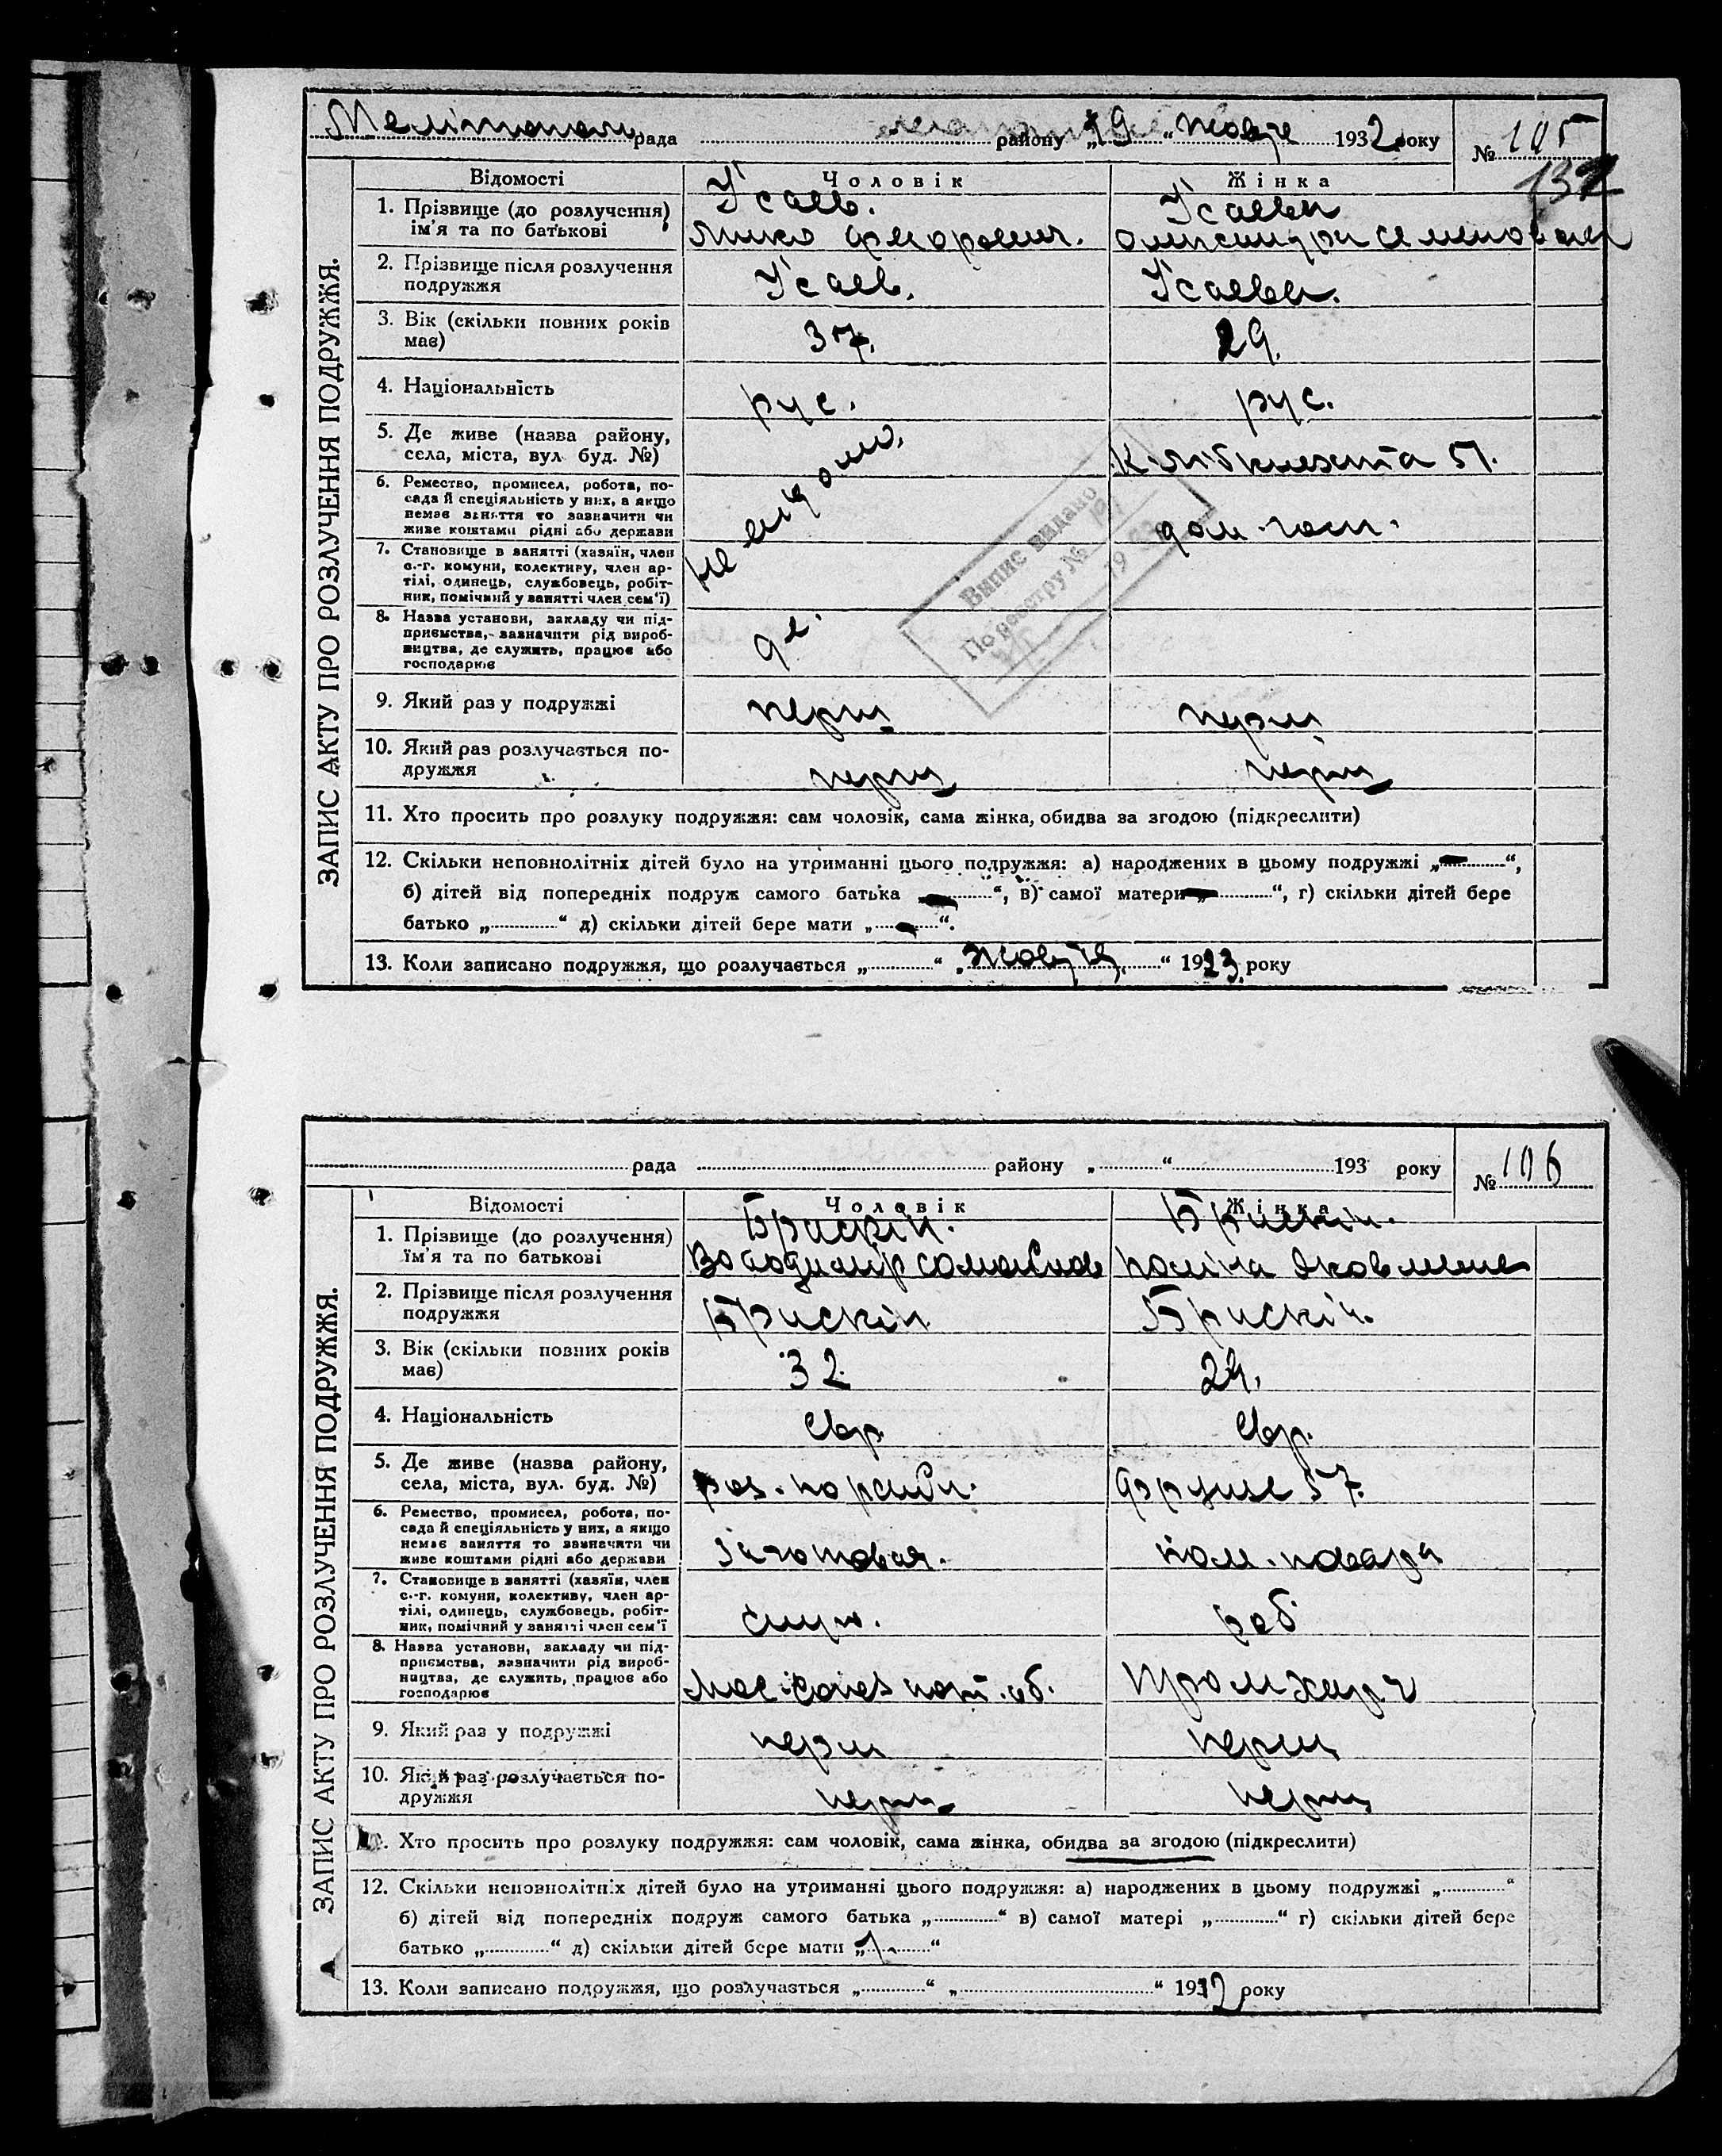 рада району „19“ 1932 року
№ 105
132
Відомості Чоловік Жінка
1. Прізвище (до розлучення) ім'я та по батькові
Ісаєв.
Ісаєва
2. Прізвище після розлучення подружжя
Ісаєв.
Ісаєва.
3. Вік (скільки повних років має)
37.
29.
4. Національність
рус.
рус.
5. Де живе (назва району, села, міста, вул буд. №)
К. Лібкнехта 51.
6. Ремество, промисел, робота, по-
сада й спеціяльність у них, а якщо
немає заняття то зазначити чи
живе коштами рідні або держави
невідомо.
дом. госп.
7. Становище в занятті (хазяїн, член
с.-г. комуни, колективу, член ар-
тілі, одинець, службовець, робіт-
ник, помічний у занятті член сем'ї)
8. Назва установи, закладу чи під-
приємства, зазначити рід вироб-
ництва, де служить, працює або
господарює
Випис видано
По реєстру №
19
9. Який раз у подружжі
перш
перш
10. Який раз розлучається по-
дружжя
перш
перш
11. Хто просить про розлуку подружжя: сам чоловік, сама жінка, обидва за згодою (підкреслити)
12. Скільки неповнолітніх дітей було на утриманні цього подружжя: а) народжених в цьому подружжі „ “,
б) дітей від попередніх подруж самого батька „ “, в) самої матери „ “, г) скільки дітей бере
батько „ “ д) скільки дітей бере мати „ “.
13. Коли записано подружжя, що розлучається „ “ „ “ 1923 року
ЗАПИС АКТУ ПРО РОЗЛУЧЕННЯ ПОДРУЖЖЯ.
рада району „ “ 193 року
№ 106
Відомості Чоловік Жінка
1. Прізвище (до розлучення) ім'я та по батькові
Брискін.
Брискін.
Володимір
Поліна
2. Прізвище після розлучення подружжя
Брискін
Брискін.
3. Вік (скільки повних років має)
32.
4. Національність
євр.
євр.
5. Де живе (назва району, села, міста, вул. буд. №)
Фрунзе 57.
6. Ремество, промисел, робота, по-
сада й спеціяльність у них, а якщо
немає заняття то зазначити чи
живе коштами рідні або держави
пом. повара
7. Становище в занятті (хазяїн, член
с.-г. комуни, колективу, член ар-
тілі, одинець, службовець, робіт-
ник, помічний у занятті член сем'ї
служ.
роб
8. Назва установи, закладу чи під-
приємства, зазначити рід вироб-
ництва, де служить, працює або
господарює
Промхарч
9. Який раз у подружжі
перш
перш
10. Який раз розлучається по-
дружжя
перш
перш
11. Хто просить про розлуку подружжя: сам чоловік, сама жінка, обидва за згодою (підкреслити)
12. Скільки неповнолітніх дітей було на утриманні цього подружжя: а) народжених в цьому подружжі „ “
б) дітей від попередніх подруж самого батька „ “ в) самої матері „ “ г) скільки дітей бере
батько „ “ д) скільки дітей бере мати „1“
13. Коли записано подружжя, що розлучається „ “ „ “ 19 року
ЗАПИС АКТУ ПРО РОЗЛУЧЕННЯ ПОДРУЖЖЯ.